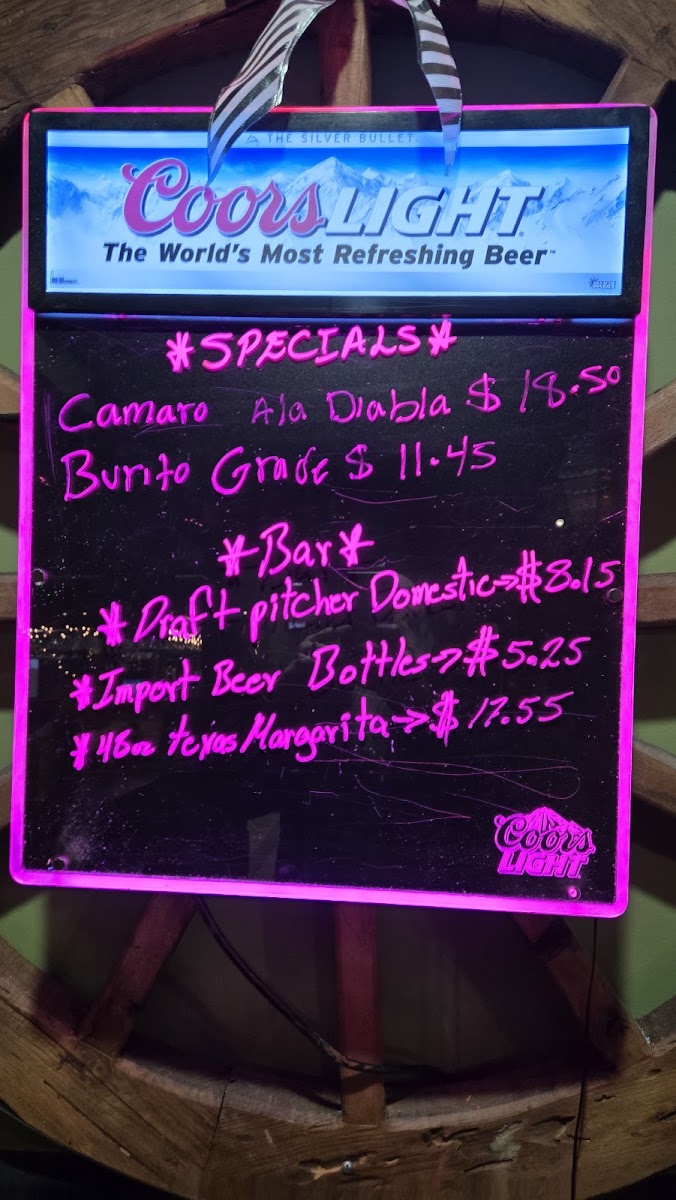 THE SILVER BULLET.
Coors LIGHT
The World's Most Refreshing Beer™
*SPECIALS*
Camaro Ala Diabla $ 18.50
Burito Grade $ 11.45
*Bar*
*Draft pitcher Domestic→$8.15
*Import Beer Bottles→$5.25
*48oz texas Margarita→$ 17.55
Coors
LIGHT